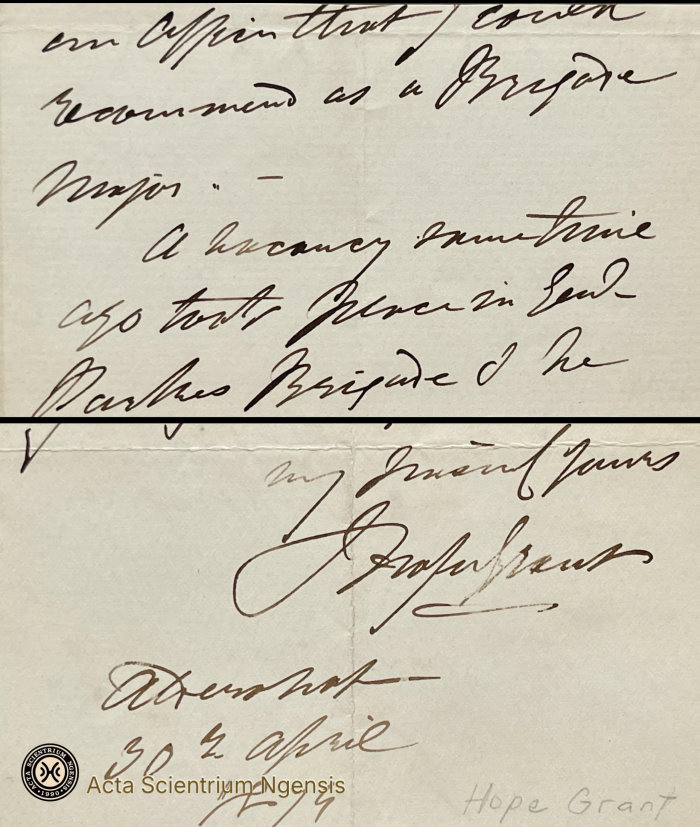 an officer that I could
recommend as a Brigade
Major. —
A vacancy sometime
ago took place in Genl
Parkes Brigade & he
my yours
J Hope Grant
Aldershot —
30 April
Hope Grant
ACTA SCIENTRIUM NGENSIS
•1990•
Acta Scientrium Ngensis